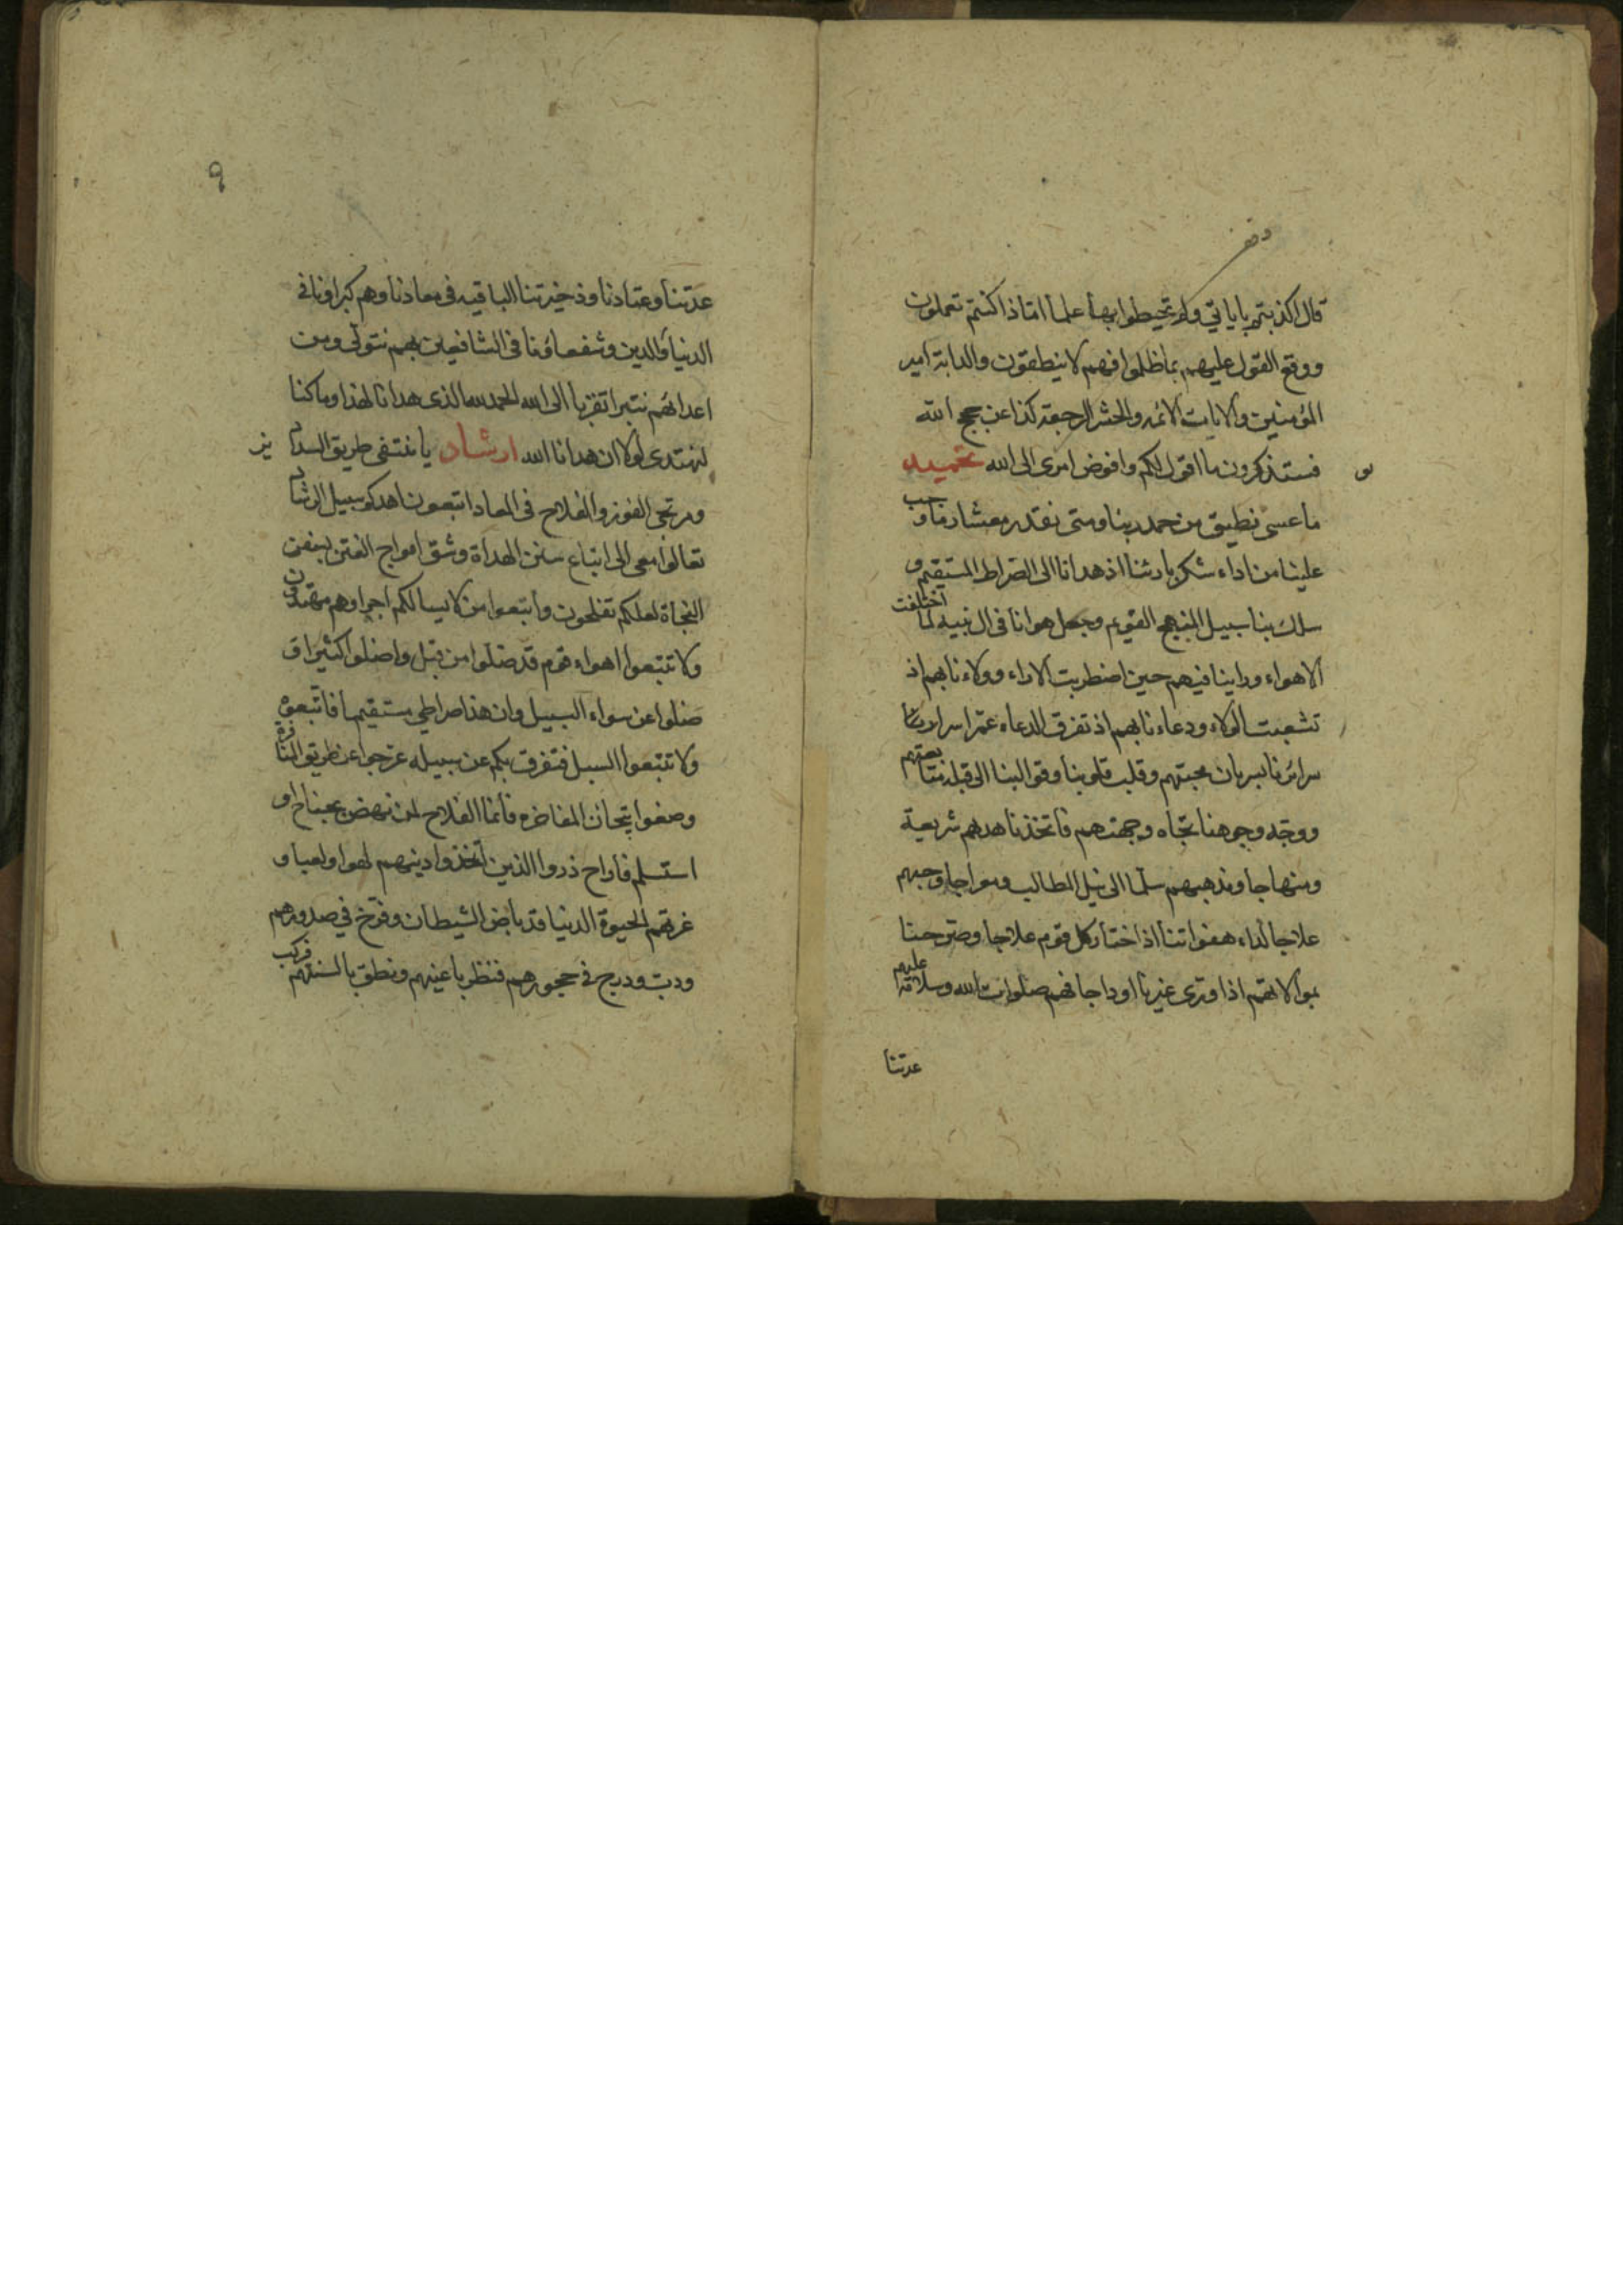 قال اكذبتم باياتي ولم تحيطوا بها علما اماذا كنتم تعملون
ووقع القول عليهم بما ظلموا فهم لا ينطقون والدابة امير
المؤمنين والايات الائمه والحشر الرجعة كذا عن حجج الله
فستذكرون ما اقول لكم وافوض امرى الى الله تحميد
ما عسى نطيق من حمد ربنا ومتى نقدر معشار ما وجب
علينا من اداء شكر بارئنا اذ هدانا الى الصراط المستقيم و
سلك بنا سبيل المنهج القويم وجعل هوانا في ال نبيه لما اختلفت
الاهواء وراينا فيهم حين اضطربت الاراء وولاءنا بهم اذ
تشعبت الولاء ودعاءنا بهم اذ تفرق الدعاء عمر اسرار
سرائرنا بسريان محبتهم وقلب قلوبنا وقوالبنا الى قبلة متابعتهم
ووجه وجوهنا تجاه وجهتهم فاتخذنا هديهم شريعة
ومنهاجا ومذهبهم سلما الى نيل المطالب ومعراجا وحبهم
علاجا لداء هفواتنا اذا اختار كل قوم علاجا وصرحنا
بموالاتهم اذا ورى غيرنا او داجا فهم صلوات الله وسلامه عليهم
عدتنا
٩
عدتنا وعتادنا وذخيرتنا الباقيه في معادنا وهم كبراونا في
الدنيا والدين وشفعاؤنا في الشافعين بهم نتولى ومن
اعدائهم نتبرا تقربا الى الله الحمد لله الذى هدانا لهذا وما كنا
لنهتدى لولا ان هدانا الله ارشاد يا مقتفى طريق السداد
ومرتجى الفوز والفلاح في المعاد اتبعون اهدكم سبيل الرشاد
تعالوا معى الى اتباع سنن الهداة وشق امواج الفتن بسفن
النجاة لعلكم تفلحون واتبعوا من لا يسالكم اجرا وهم مهتدون
ولا تتبعوا اهواء قوم قد ضلوا من قبل واضلوا كثيرا و
ضلوا عن سواء السبيل وان هذا صراطي مستقيما فاتبعوه
ولا تتبعوا السبل فتفرق بكم عن سبيله عرجوا عن طريق المنافرة
وضعوا تيجان المفاخره فانما الفلاح لمن نهض بجناح او
استسلم فاراح ذروا الذين اتخذوا دينهم لهوا ولعبا و
غرتهم الحيوة الدنيا قد باض الشيطان وفرخ في صدورهم
ودب ودرج في حجورهم فنظر باعينهم ونطق بالسنتهم فركب